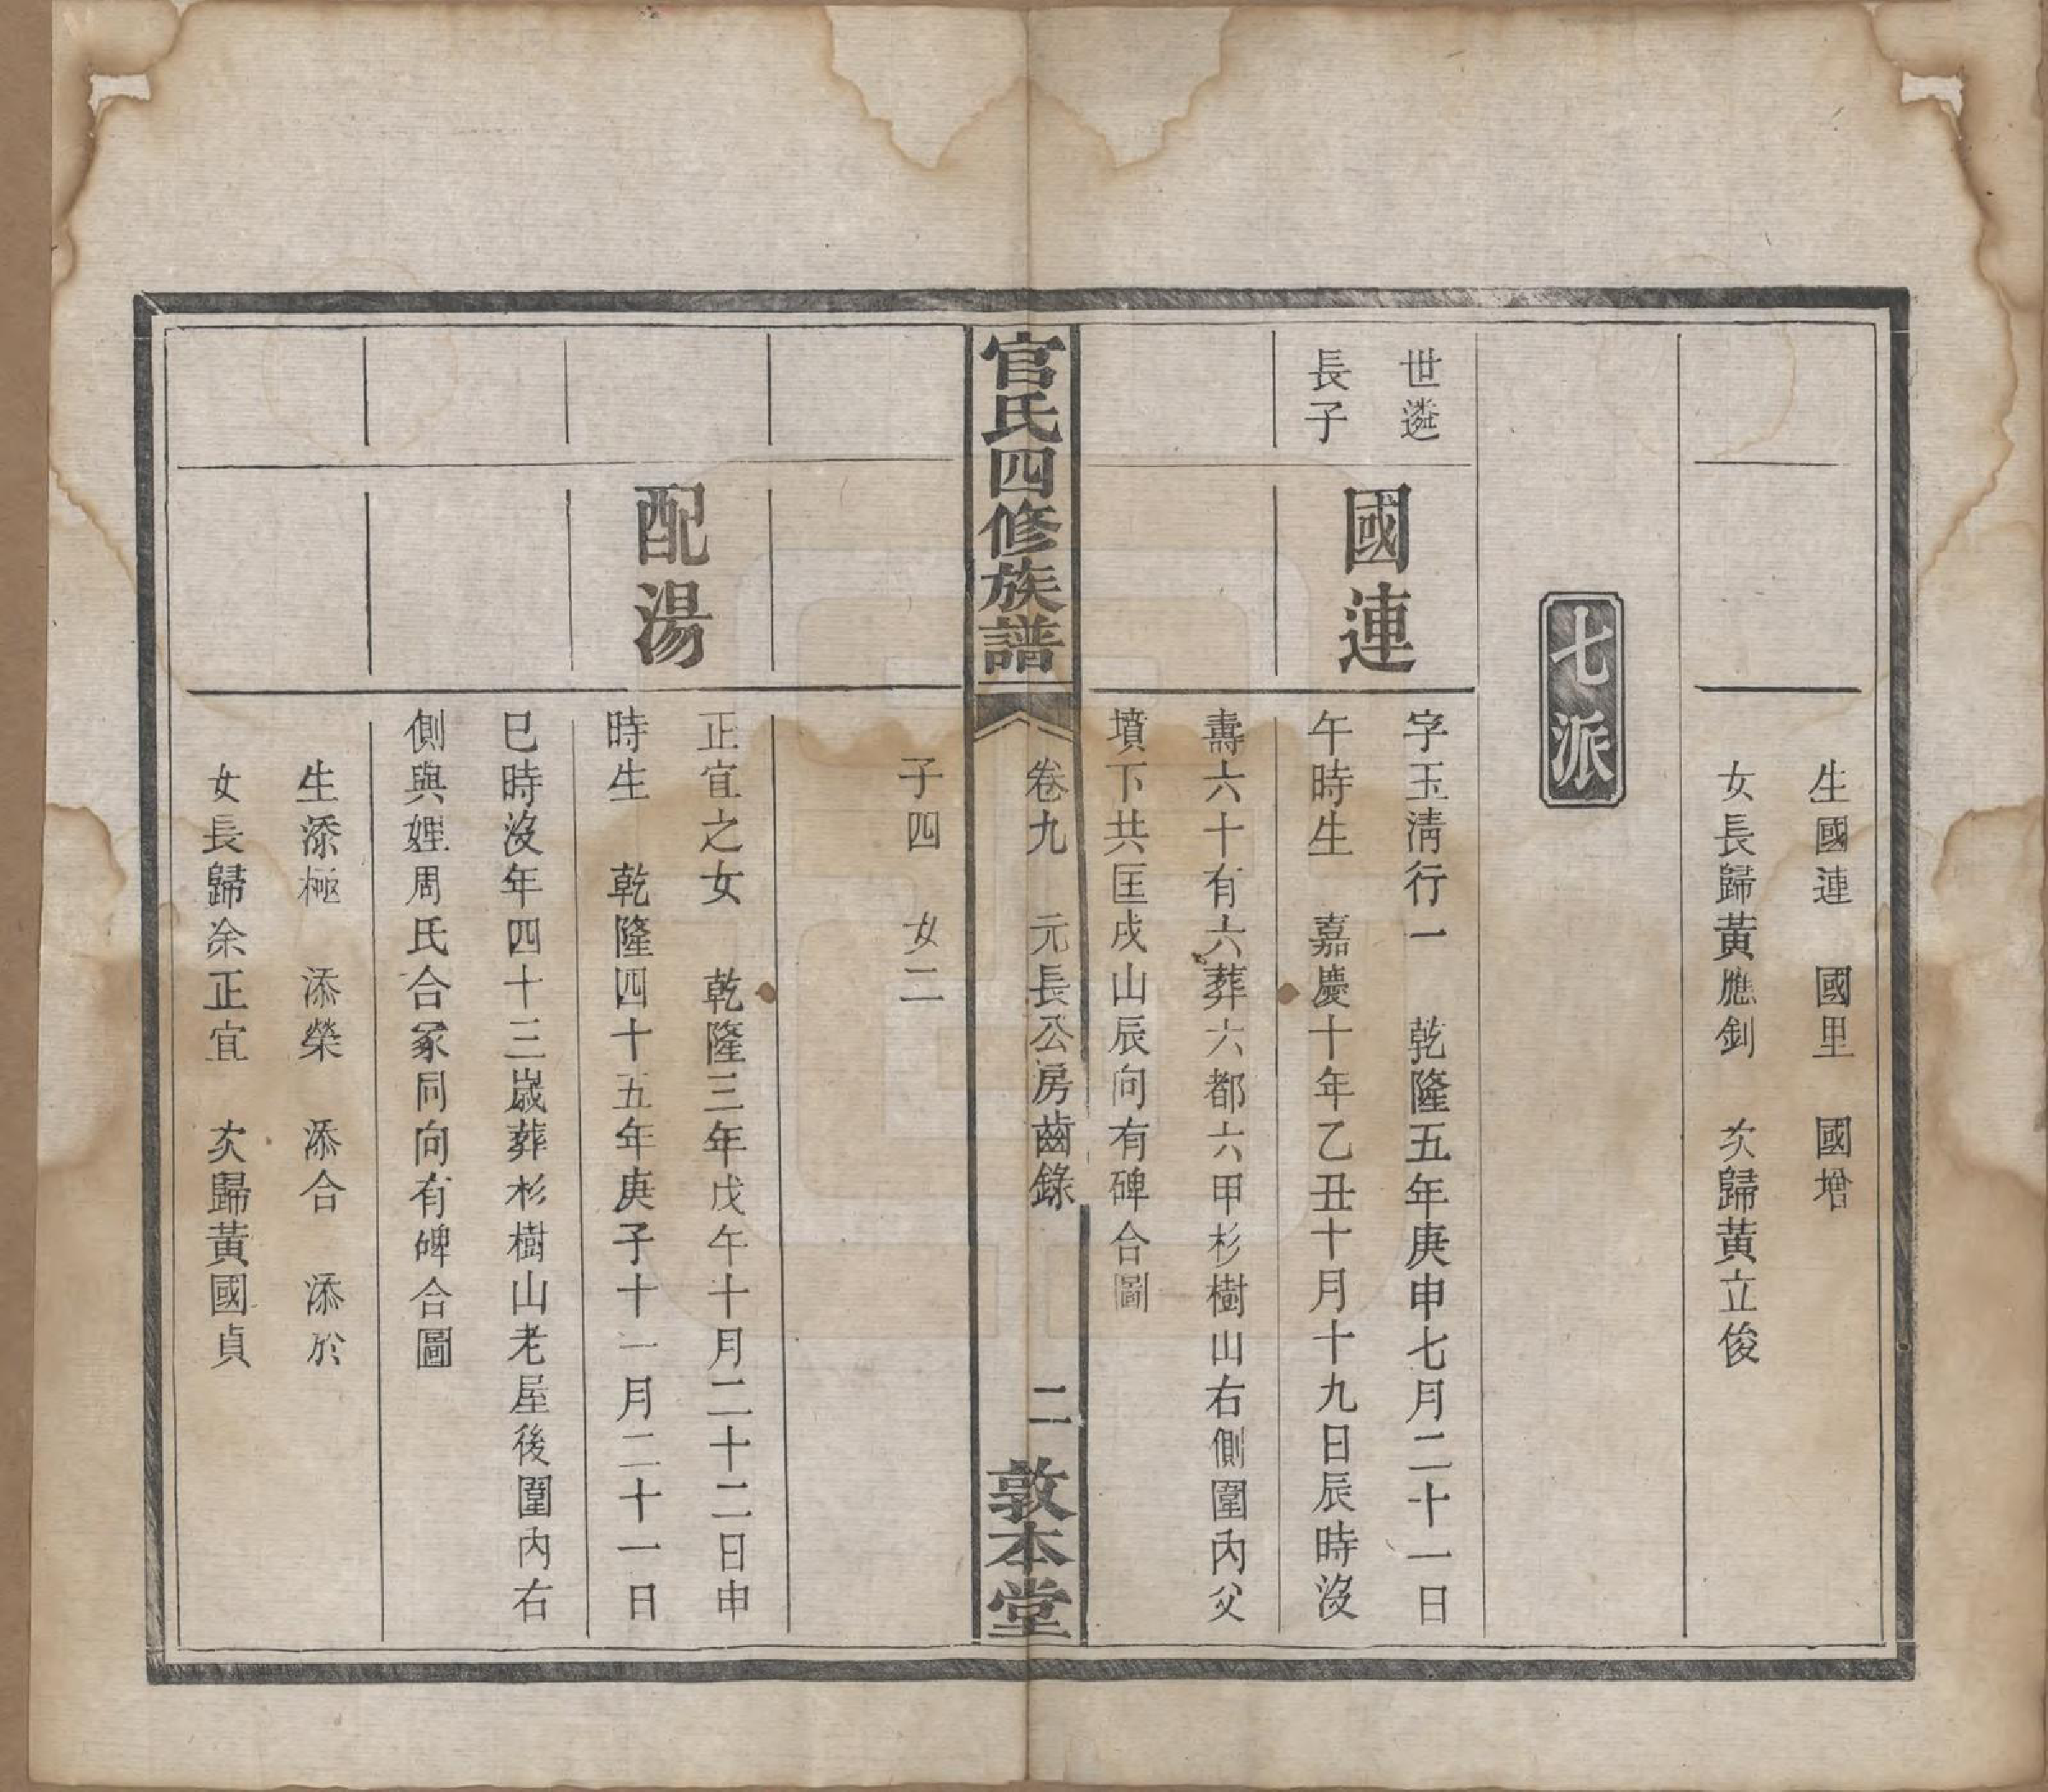 生國連　國里　國增
女長歸黃應釗　次歸黃立俊
七派
世遴
長子
國連
字玉淸行一　乾隆五年庚申七月二十一日
午時生　嘉慶十年乙丑十月十九日辰時沒
壽六十有六葬六都六甲杉樹山右側圍內父
墳下共匡戌山辰向有碑合圖
官氏四修族譜
卷九　元長公房齒錄
二
敦本堂
子四　女二
配湯
正宜之女　乾隆三年戊午十月二十二日申
時生　乾隆四十五年庚子十一月二十一日
巳時沒年四十三歲葬杉樹山老屋後圍內右
側與娌周氏合冢同向有碑合圖
生添極　添榮　添合　添於
女長歸余正宜　次歸黃國貞